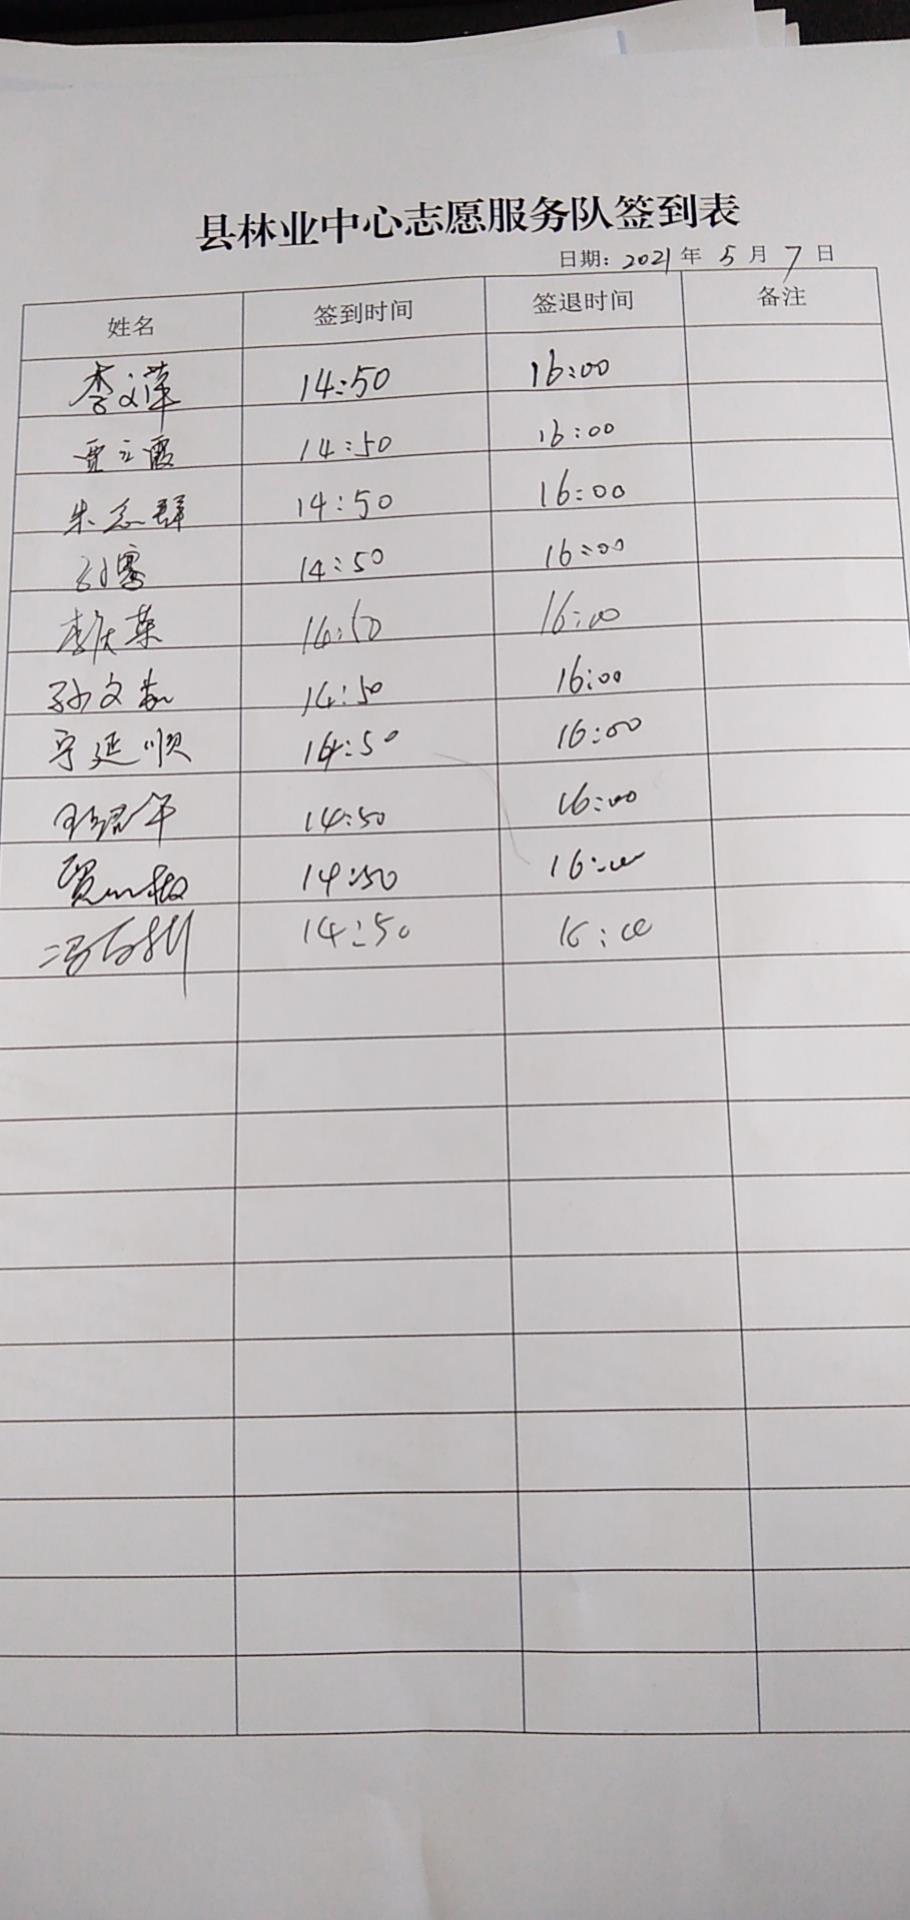 县林业中心志愿服务队签到表
日期: 2021 年 5 月 7 日
姓名 签到时间 签退时间 备注
李文萍 14:50 16:00
贾立霞 14:50 16:00
朱志群 14:50 16:00
14:50 16:00
李庆荣 14:50 16:00
孙文 14:50 16:00
宁延顺 14:50 16:00
14:50 16:00
贾 14:50 16:00
冯 14:50 16:00